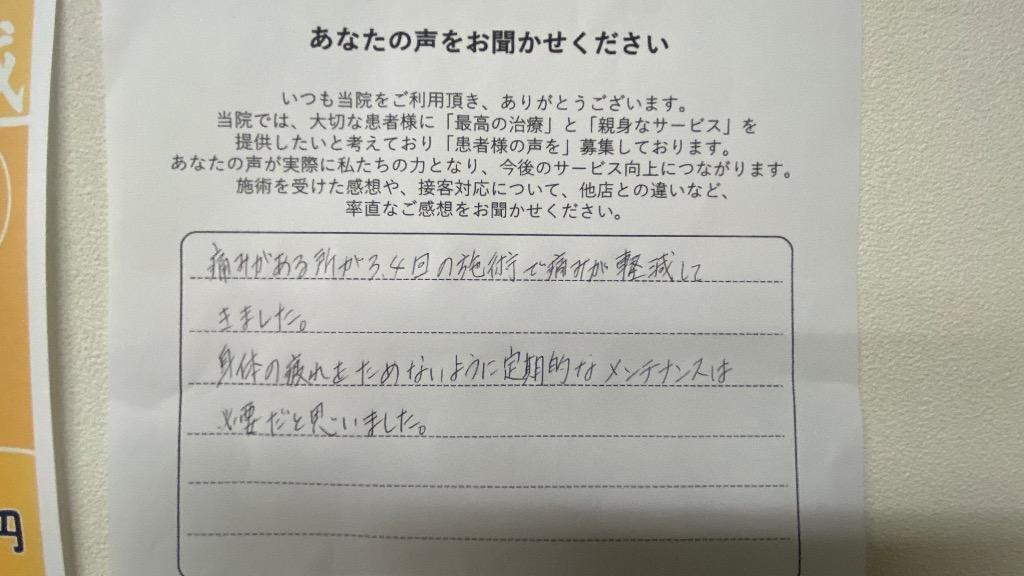 あなたの声をお聞かせください
いつも当院をご利用頂き、ありがとうございます。
当院では、大切な患者様に「最高の治療」と「親身なサービス」を
提供したいと考えており「患者様の声を」募集しております。
あなたの声が実際に私たちの力となり、今後のサービス向上につながります。
施術を受けた感想や、接客対応について、他店との違いなど、
率直なご感想をお聞かせください。
痛みがある所が3.4回の施術で痛みが軽減して
きました。
身体の疲れをためないように定期的なメンテナンスは
必要だと思いました。
円